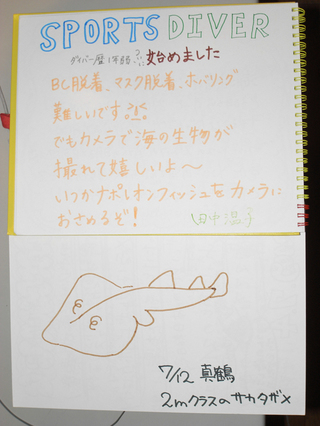 SPORTS DIVER
ダイバー歴1年弱 始めました
BC脱着、マスク脱着、ホバリング
難しいです
でもカメラで海の生物が
撮れて嬉しいよ～
いつかナポレオンフィッシュをカメラに
おさめるぞ!
田中温子
7/12 真鶴
2mクラスのサカタザメ